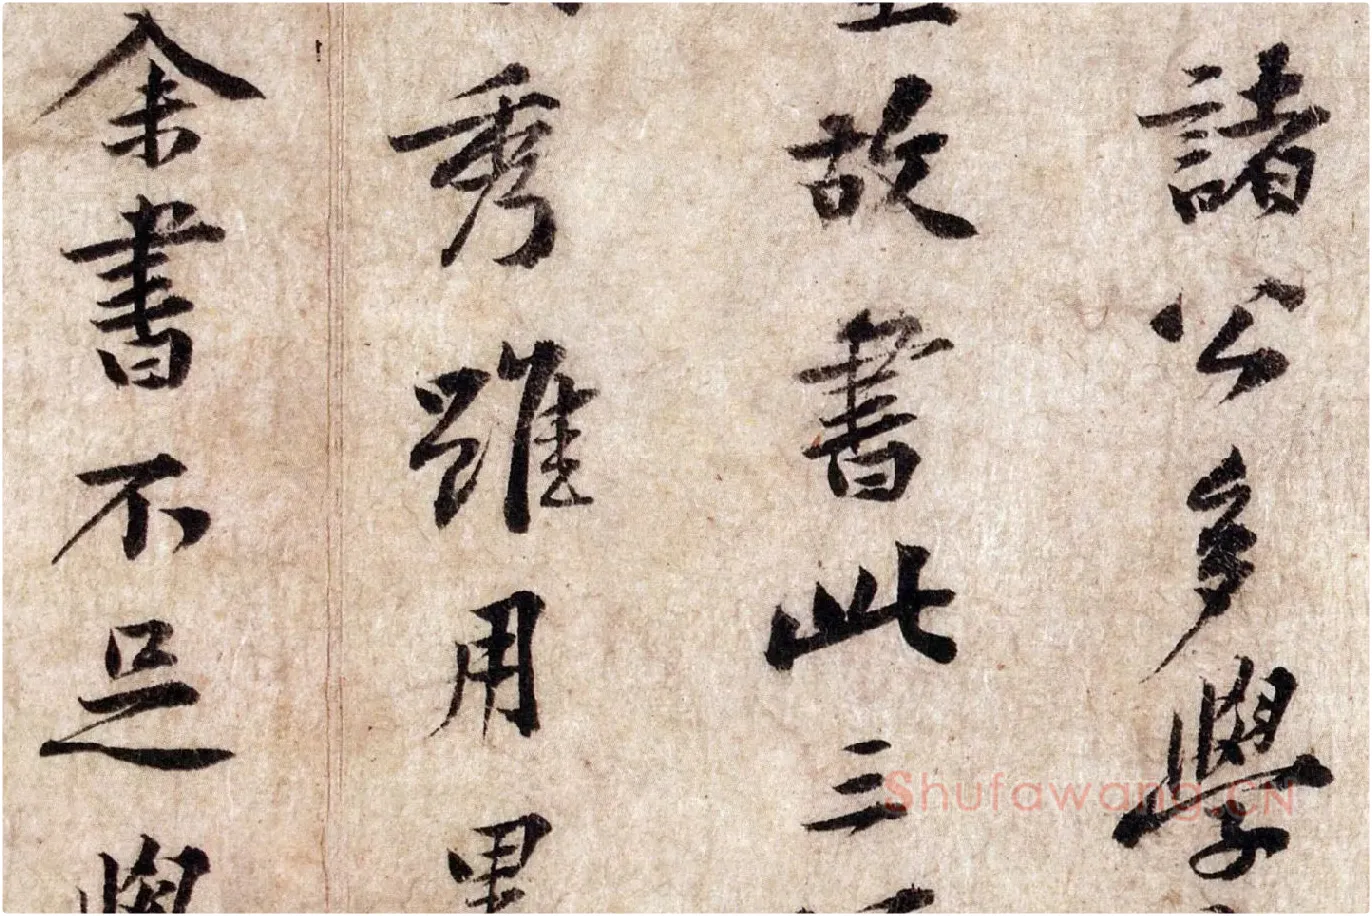 諸公多學
故書此三
秀雖用
余書不足
Shufawang.CN